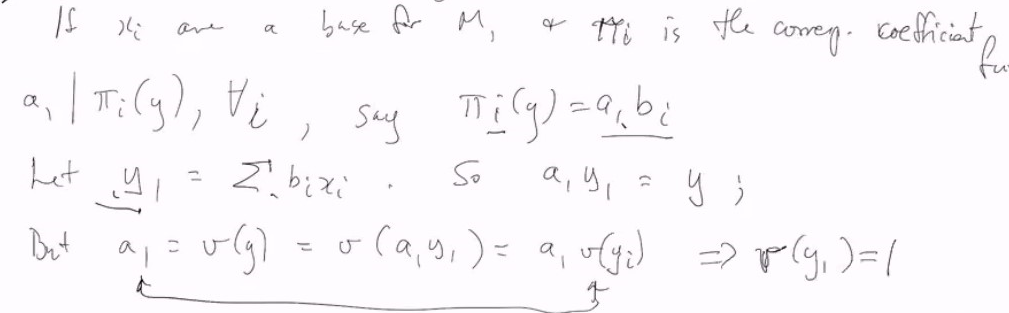 If xᵢ are a base for M, & πᵢ is the corresp. coefficient
a₁ | πᵢ(y), ∀i, say πᵢ(y) = a₁bᵢ
Let y₁ = Σ bᵢxᵢ. So a₁y₁ = y;
But a₁ = v(y) = v(a₁y₁) = a₁v(yᵢ) ⇒ v(y₁) = 1